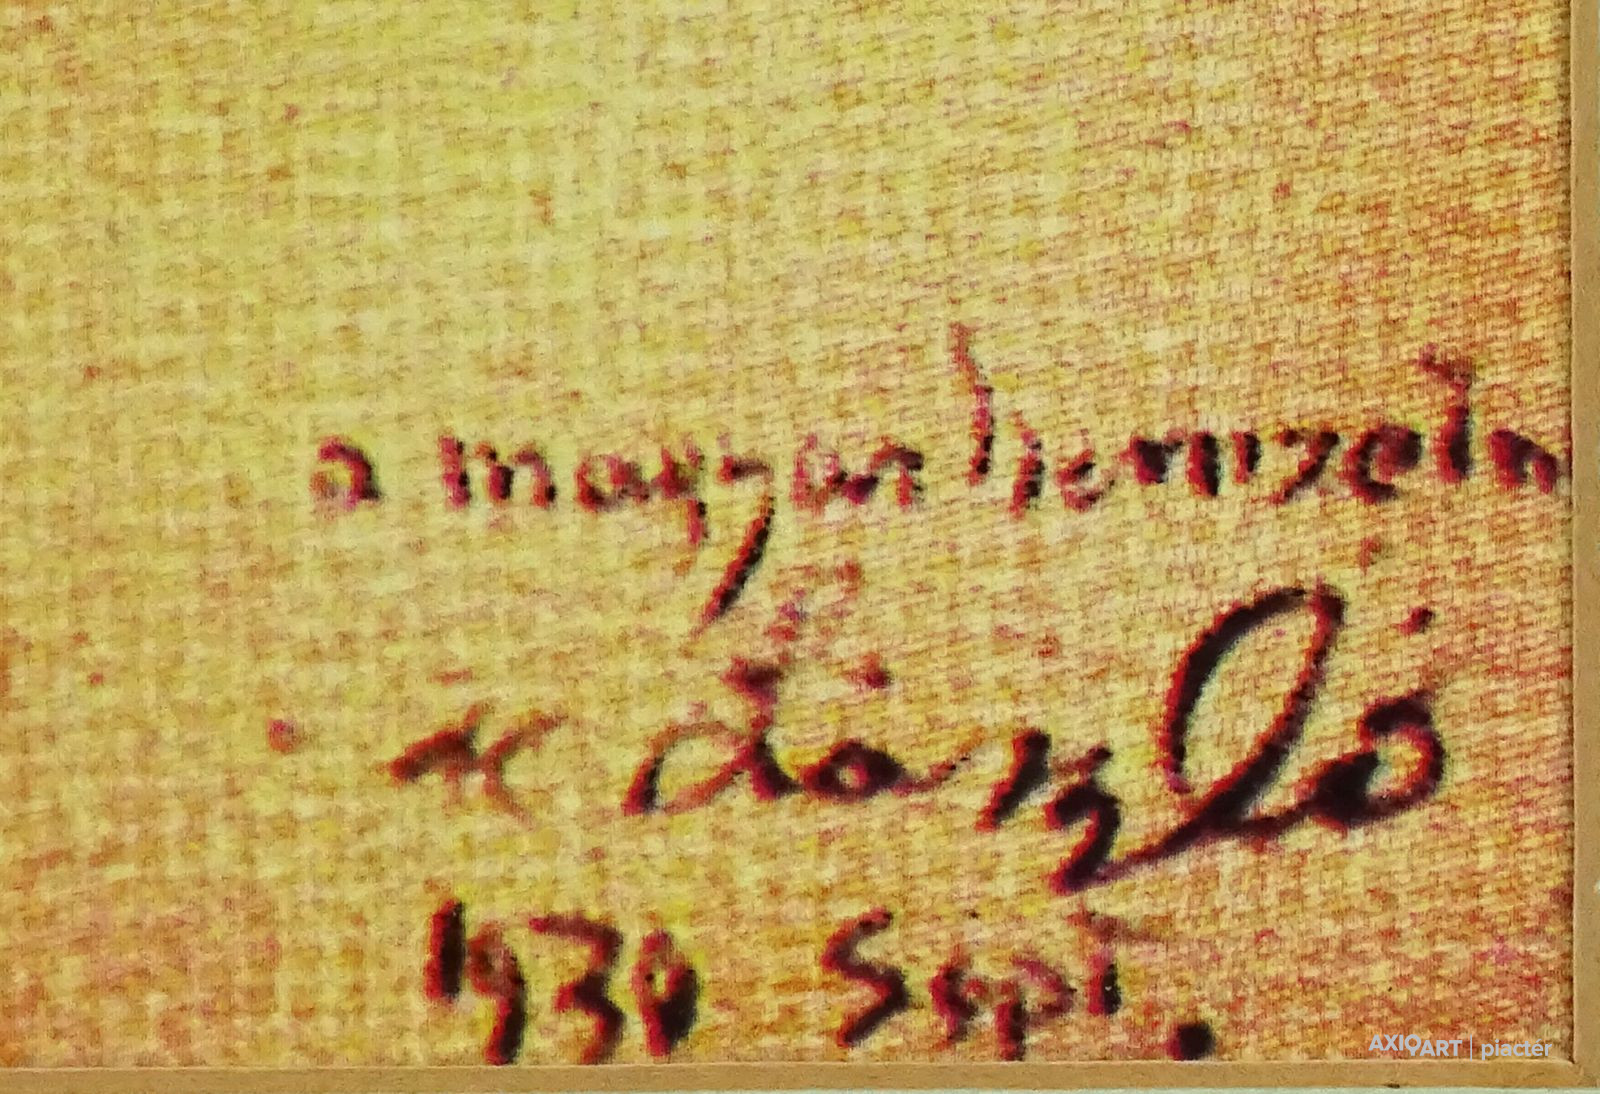 a magyar nemzetn
László
1930 Sept.
AXIOART | piactér